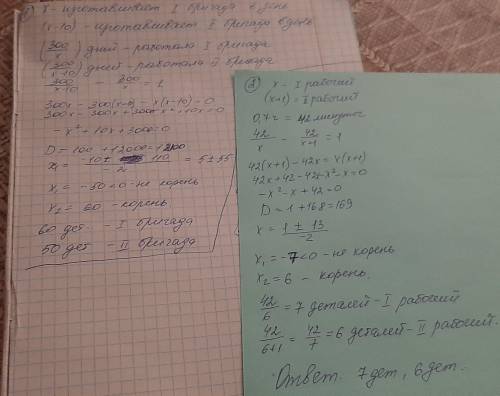 ① x - изготавливает I бригада в день
(x-10) - изготавливает II бригада в день
(300/x) дней - работала I бригада
(300/x-10) дней - работала II бригада
300/x-10 - 300/x = 1
300x - 300(x-10) - x(x-10) = 0
300x - 300x + 3000 - x² + 10x = 0
-x² + 10x + 3000 = 0
D = 100 + 12000 = 12100
x₁ = -10 ± 110 / -2 = 5 ± 55
x₁ = -50 < 0 - не корень
x₂ = 60 - корень
60 дет - I бригада
50 дет - II бригада
② x - I рабочий
(x+1) = II рабочий
0,7 ч = 42 минуты
42/x - 42/x+1 = 1
42(x+1) - 42x = x(x+1)
42x + 42 - 42x - x² - x = 0
-x² - x + 42 = 0
D = 1 + 168 = 169
x = 1 ± 13 / -2
x₁ = -7 < 0 - не корень
x₂ = 6 - корень.
42/6 = 7 деталей - I рабочий
42/6+1 = 42/7 = 6 деталей - II рабочий.
Ответ. 7 дет, 6 дет.